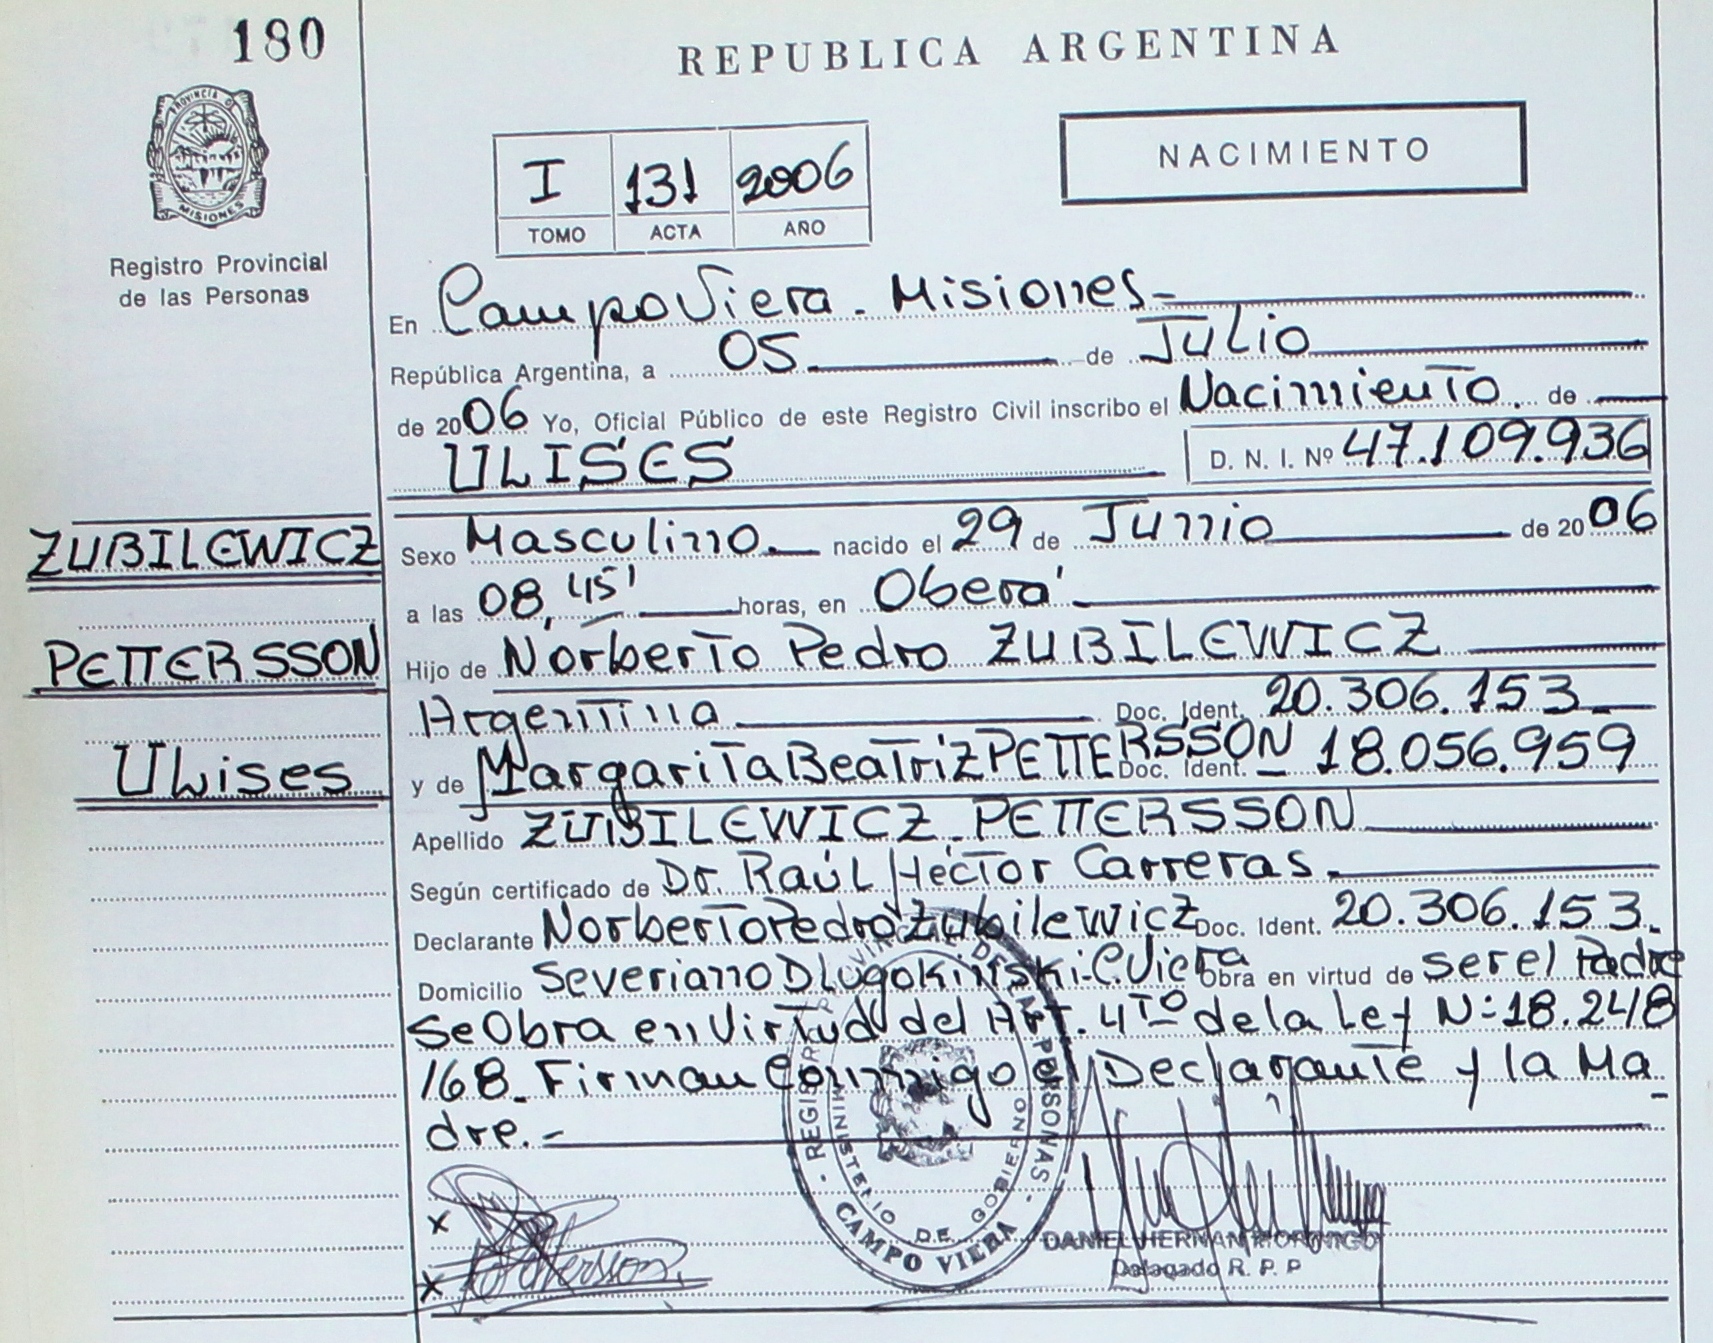 180
REPUBLICA ARGENTINA
PROVINCIA D
MISIONES
Registro Provincial
de las Personas
NACIMIENTO
I 131 2006
TOMO ACTA AÑO
En Campo Viera - Misiones -
República Argentina, a 05 de Julio
de 2006 Yo, Oficial Público de este Registro Civil inscribo el Nacimiento de
ULISES D. N. I. Nº 47.109.936
ZUBILEWICZ
Sexo Masculino nacido el 29 de Junio de 2006
a las 08,45' horas, en Oberá
PETTERSSON
Hijo de Norberto Pedro ZUBILEWICZ
Argentina Doc. Ident. 20.306.153
ULises
y de Margarita Beatriz PETTERSSON Doc. Ident. 18.056.959
Apellido ZUBILEWICZ PETTERSSON
Según certificado de Dr. Raúl Héctor Carreras
Declarante Norberto Pedro Zubilewicz Doc. Ident. 20.306.153
Domicilio Severiano DLugokinski - C. Viera Obra en virtud de ser el Padre
Se Obra en Virtud del Art. 4to de la Ley N: 18.248
168 - Firman Conmigo el Declarante y la Ma
dre. -
REGISTRO PROVINCIAL DE LAS PERSONAS
MINISTERIO DE GOBIERNO
CAMPO VIERA
X
X Pettersson
DANIEL HERNAN
Delegado R. P. P